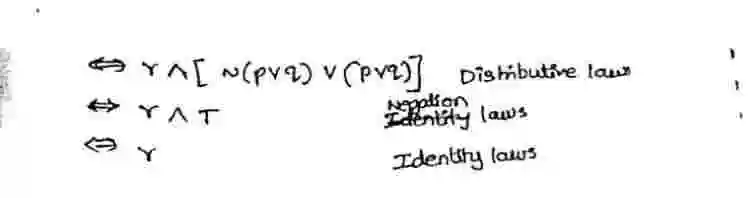 ⇔ r ∧ [ ~(p∨q) ∨ (p∨q)] Distributive laws
⇔ r ∧ T Negation laws
⇔ r Identity laws